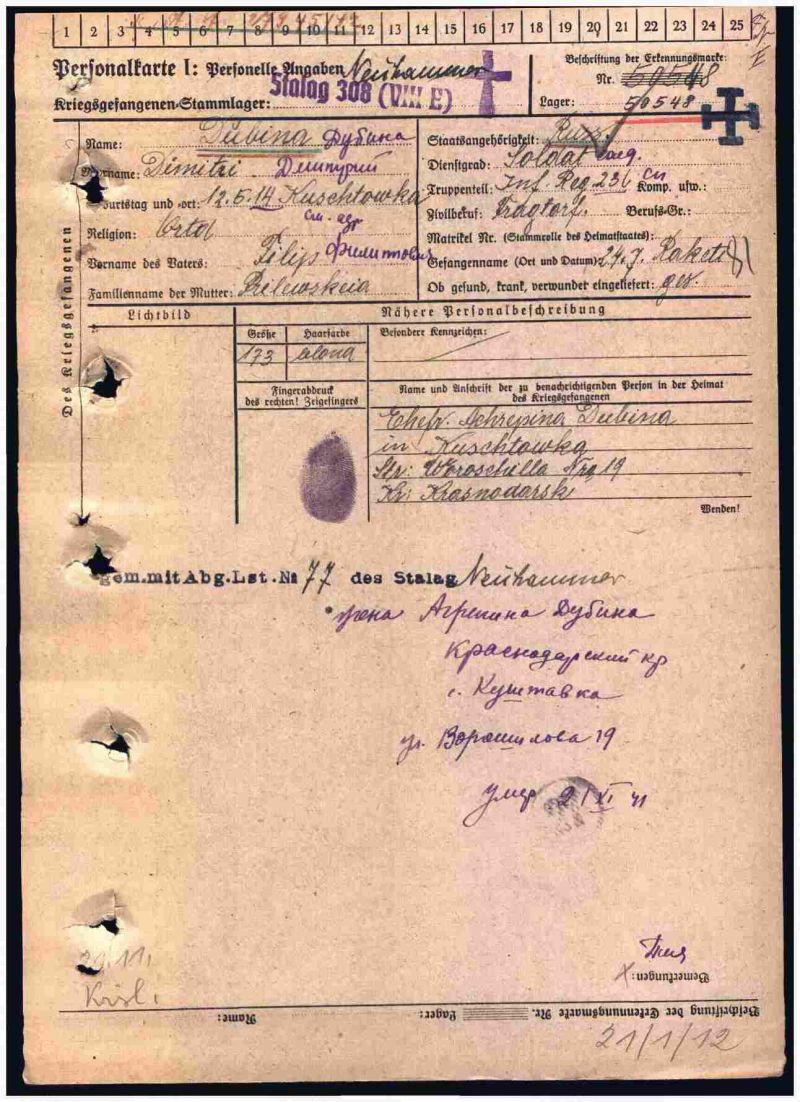 1 2 3 4 5 6 7 8 9 10 11 12 13 14 15 16 17 18 19 20 21 22 23 24 25
Personalkarte I: Personelle Angaben
Neuhammer
Kriegsgefangenen-Stammlager: Stalag 308 (VIII E)
Beschriftung der Erkennungsmarke:
Nr. 50548
Lager: 50548
Des Kriegsgefangenen
Name: Dubina Дубина
Vorname: Dimitri Дмитрий
Geburtstag und -ort: 12.5.14 Kuschtowka
Religion: Ortd
Vorname des Vaters: Filip Филиппович
Familienname der Mutter:
Staatsangehörigkeit: Russ.
Dienstgrad: Soldat
Truppenteil: Inf. Reg. 236 Komp. usw.:
Zivilberuf: Berufs-Gr.:
Matrikel Nr. (Stammrolle des Heimatstaates):
Gefangenname (Ort und Datum): 24.7.
Ob gesund, krank, verwundet eingeliefert: ges.
Lichtbild
Nähere Personalbeschreibung
Größe Haarfarbe Besondere Kennzeichen:
173 blond
Fingerabdruck
des rechten! Zeigefingers
Name und Anschrift der zu benachrichtigenden Person in der Heimat
des Kriegsgefangenen
Ehefr. Dubina
in Kuschtowka
Str: Woroschilla Nro 19
Kr: Krasnodarsk
Wenden!
gem. mit Abg. Lst. № 77 des Stalag Neuhammer
жена Агрепина Дубина
Краснодарский кр
с. Куштавка
ул. Ворошилова 19
умер 21 XI 41
21.11.
Bemerkungen:
Beschriftung der Erkennungsmarke Nr. Lager: Name:
21/1/12